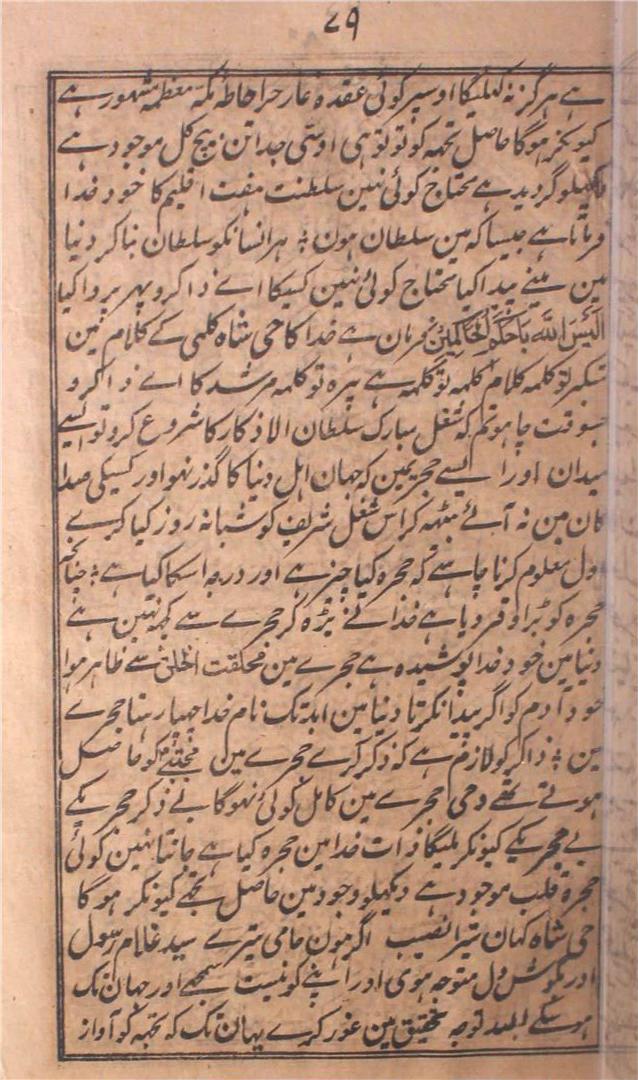 ٤٩
ہے ہرگز نہ کہلیگا اوسپر کوئی عقدہ غار حرا حاطہ مکہ معظمہ مشہور ہے
کیونکر ہوگا حاصل تجہہ کو تو توہی اوسی جدا تن بیچ کل موجود ہے
دیکہلو گر دید ہے محتاج کوئی نہین سلطنت ہفت اقلیم کا خود خدا
فرماتا ہے جیسا کہ مین سلطان ہون ؛ ہر انسانکو سلطان بنا کر دنیا
مین مینے پیدا کیا محتاج کوئی نہین کسیکا اے ذاکرو پہر پروا کیا
اَلَیْسَ اللّٰہُ بِاَحْکَمِ الْحَاکِمِیْنَ فرمان ہے خدا کا حی شاہ کلمی کے کلام مین
کلمہ کلام کلمہ تو کلمہ ہے پڑہ تو کلمہ مرشد کا اے ذاکرو
جسوقت چاہو تم کہ شغل مبارک سلطان الاذکار کا شروع کرو تو ایسے
میدان اور ایسے حجریمین کہ جہان اہل دنیا کا گذر نہو اور کسیکی صدا
کان مین نہ آئے بیٹہہ کر اس شغل شریف کو شبانہ روز کیا کرے
اول معلوم کرنا چاہے کہ حجرہ کیا چیز ہے اور درجہ اسکا کیا ہے ؛ چنانچہ
حجرہ کو بڑا وقر دیا ہے خدا نے بڑہ کر حجرے سے کچہہ نہین ہے
دنیا مین خود خدا پوشیدہ ہے حجرے مین فخلقت الخلق سے ظاہر ہوا
خود آدم کو اگر پیدا نکرتا دنیا مین ابد تک نام خدا چہپا رہتا حجرے
مین ؛ ذاکر کو لازم ہے کہ ذکر کرے حجرے مین کو حاصل
ہوتے تہے وحی حجرے مین کامل کوئی نہوگا بے ذکر حجریکے
بے حجریکے کیونکر ملیگا ذات خدا مین حجرہ کیا ہے جانتا نہین کوئی
حجرۂ قلب موجود ہے دیکہلو وجود مین حاصل تجہے کیونکر ہوگا
حی شاہ کہان تیرا نصیب اگر ہون حامی تیرے سید غلام رسول
اور گوش دل متوجہ ہوی اور اپنے کو نیست سمجہے اور جہان تک
ہوسکے المد توجہ تحقیق مین غور کرے یہان تک کہ تجہہ کو آواز